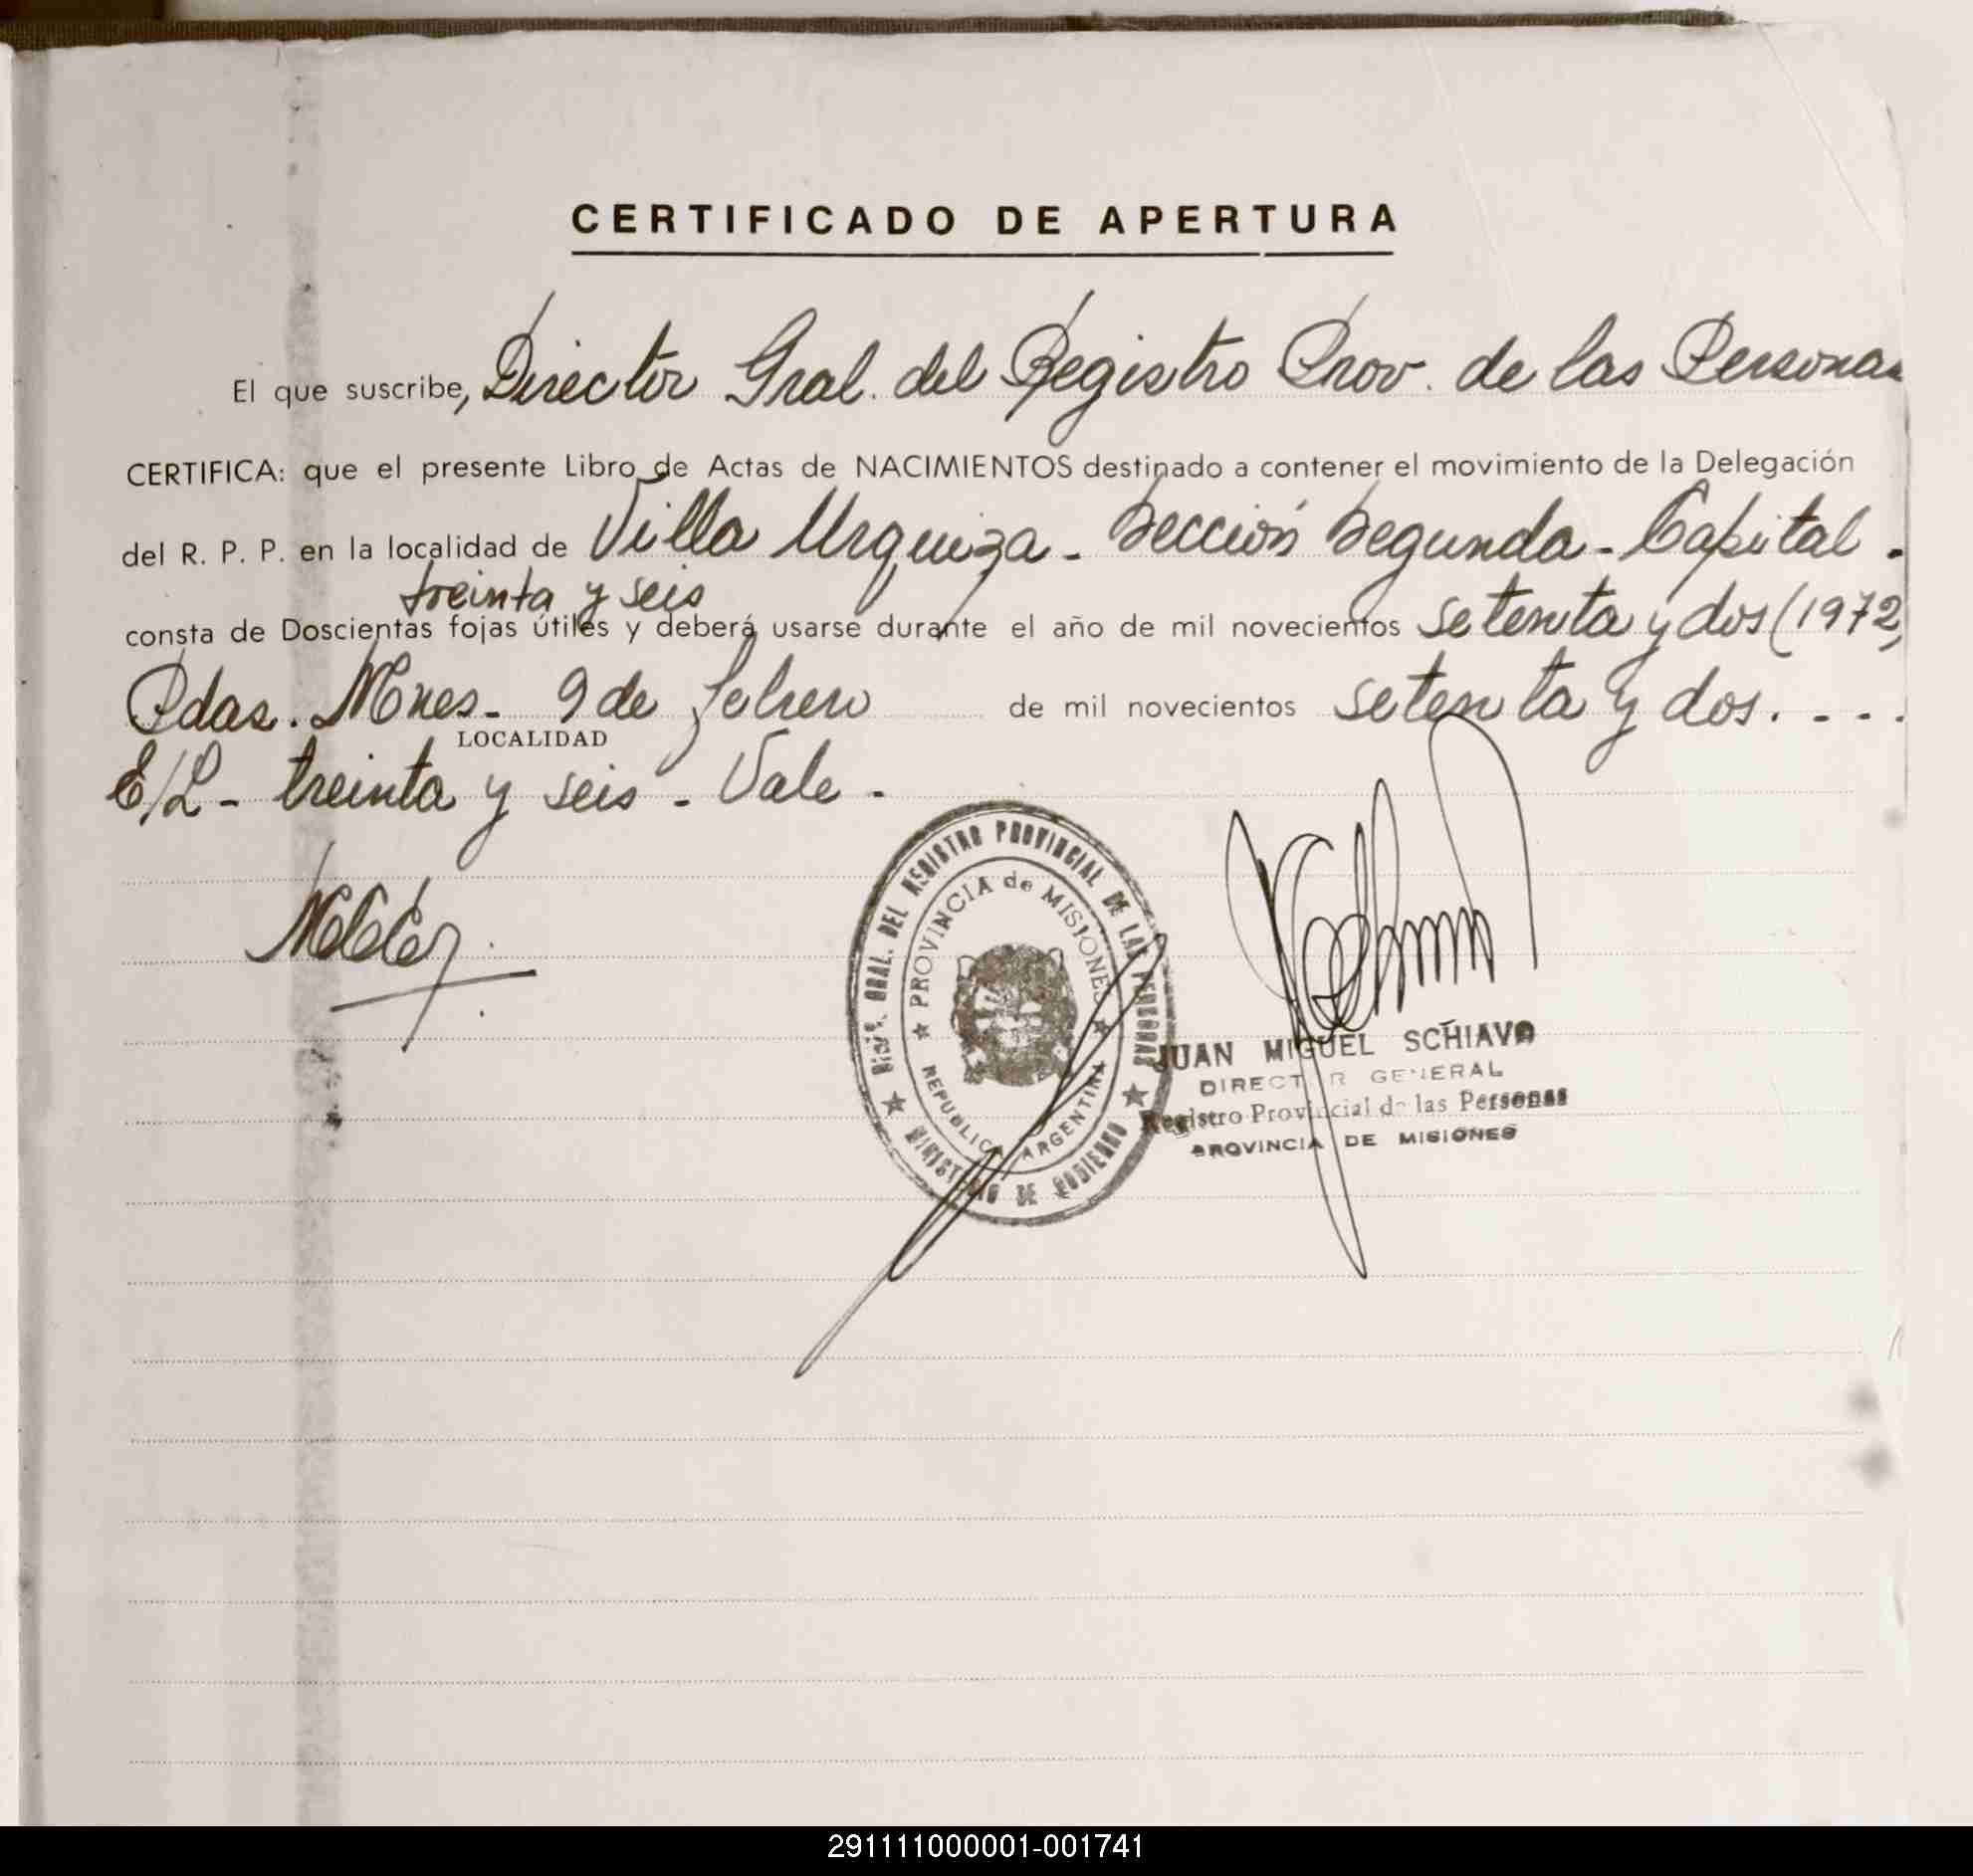 CERTIFICADO DE APERTURA
El que suscribe, Director Gral. del Registro Prov. de las Personas
CERTIFICA: que el presente Libro de Actas de NACIMIENTOS destinado a contener el movimiento de la Delegación
del R. P. P. en la localidad de Villa Urquiza - Sección Segunda - Capital.
treinta y seis
consta de Doscientas fojas útiles y deberá usarse durante el año de mil novecientos setenta y dos (1972)
Pdas. Mnes - 9 de febrero de mil novecientos setenta y dos. - - .
LOCALIDAD
E/L - treinta y seis - Vale -
DIR. GRAL. DEL REGISTRO PROVINCIAL DE LAS PERSONAS
PROVINCIA de MISIONES
REPUBLICA ARGENTINA
MINISTERIO DE GOBIERNO
JUAN MIGUEL SCHIAVO
DIRECTOR GENERAL
Registro Provincial de las Personas
PROVINCIA DE MISIONES
291111000001-001741